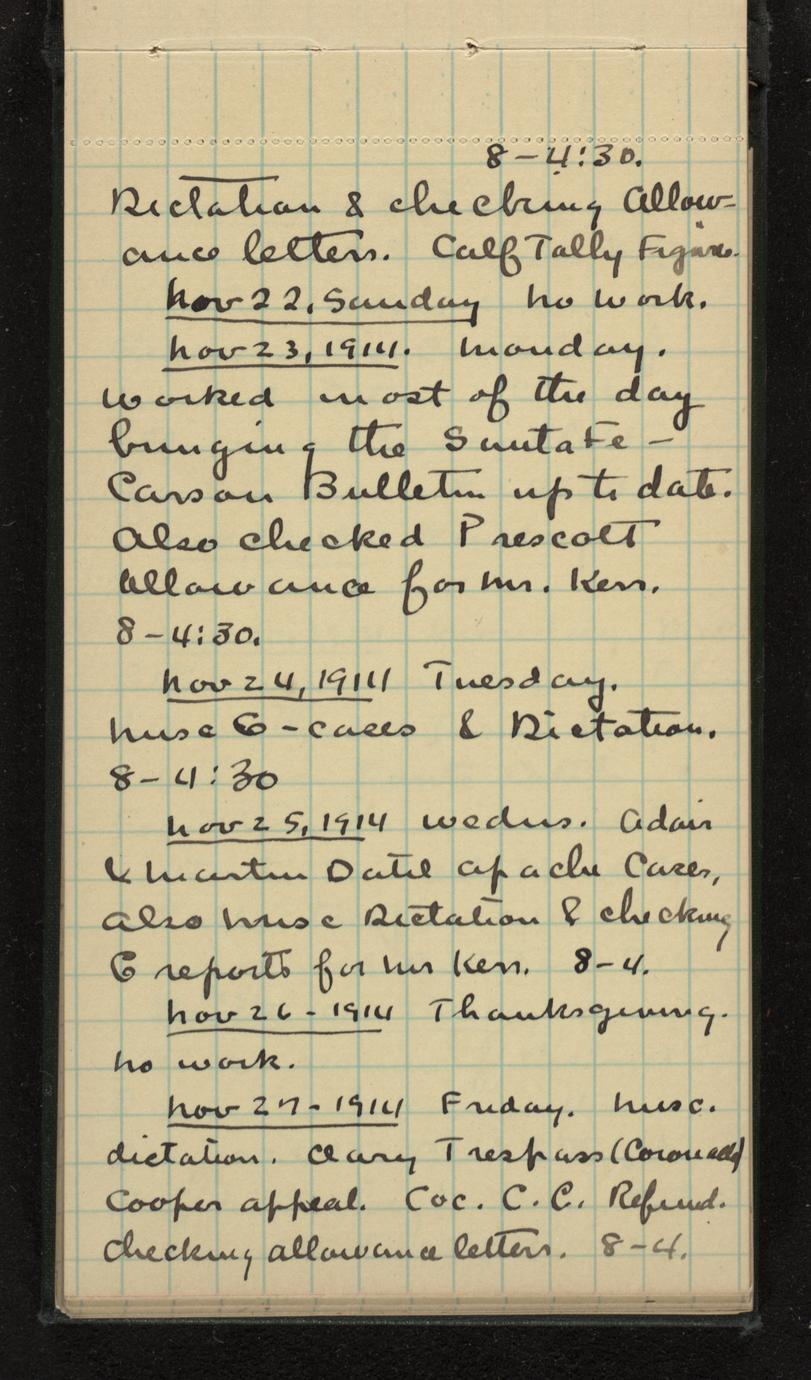 8-4:30.
Dictation & checking Allow-
ance letters. Calf Tally Figures.
Nov 22, Sunday no work.
Nov 23, 1914. Monday.
Worked most of the day
bringing the Santa Fe -
Carson Bulletin up to date.
Also checked Prescott
Allowance for Mr. Kerr.
8-4:30.
Nov 24, 1914 Tuesday.
Misc G-cases & Dictation.
8-4:30
Nov 25, 1914 Wednes. Adair
& Martin Datil Apache Cases,
Also Misc Dictation & checking
G reports for Mr Kerr. 8-4.
Nov 26-1914 Thanksgiving.
no work.
Nov 27-1914 Friday. Misc.
dictation. Clary Trespass (Coronado)
Cooper appeal. Coc. C. C. Refund.
Checking allowance letters. 8-4.